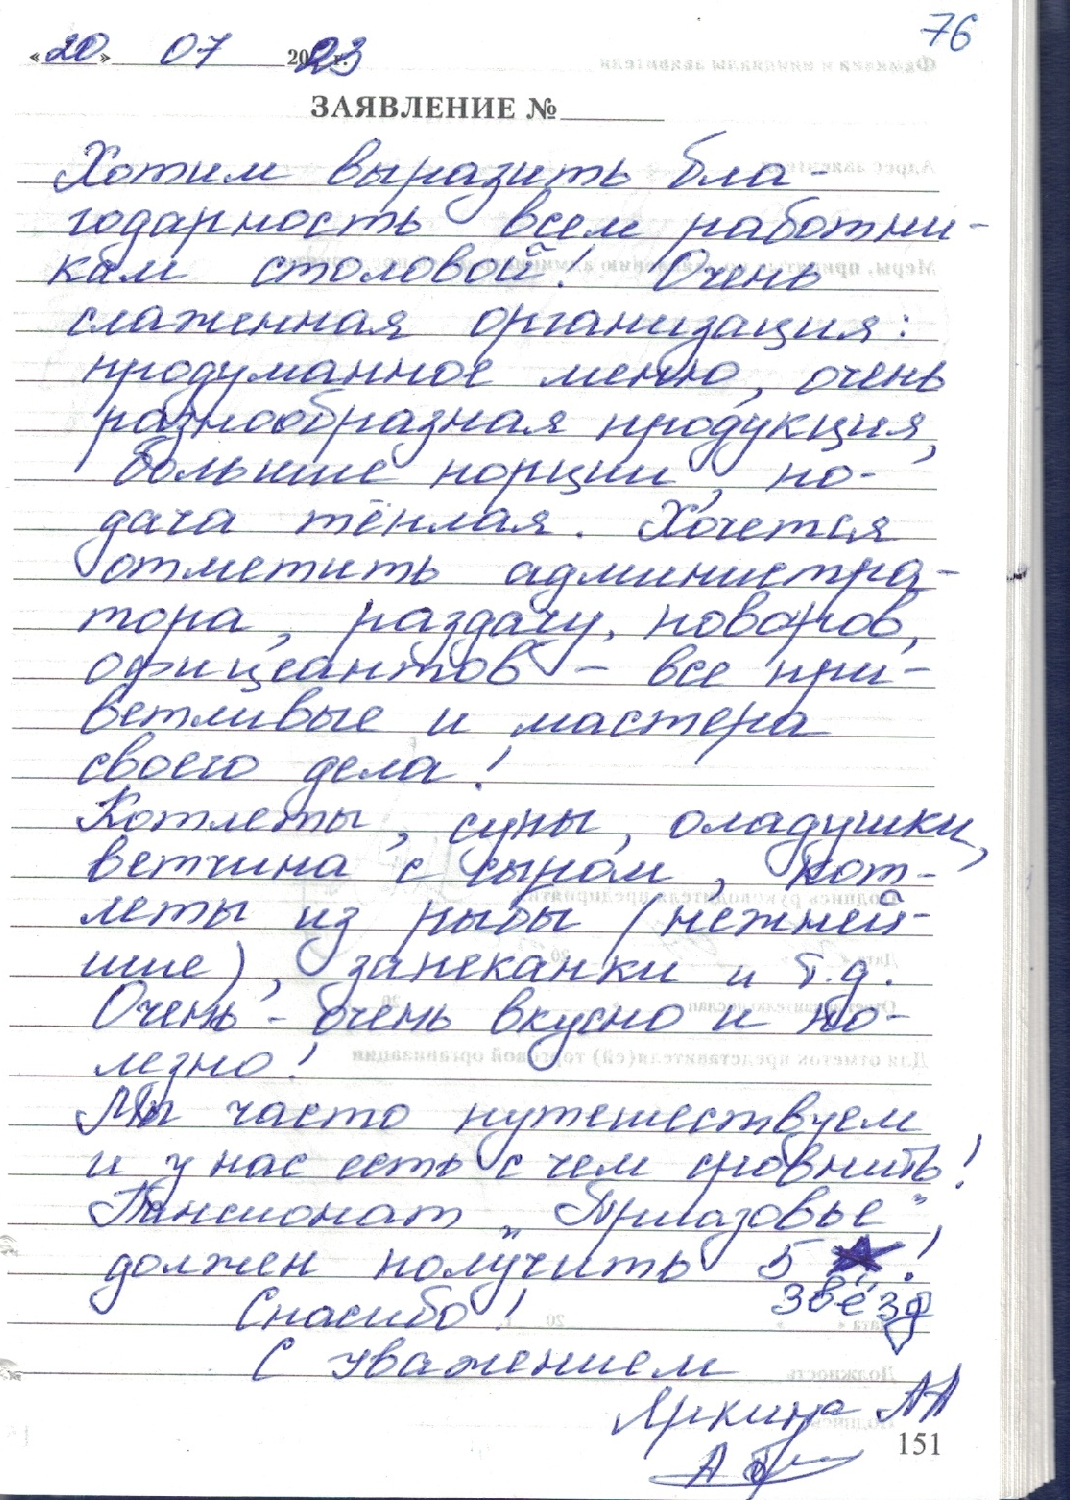 76
«20» 07 2023 г.
ЗАЯВЛЕНИЕ №
Хотим выразить бла-
годарность всем работни-
кам столовой! Очень
слаженная организация:
продуманное меню, очень
разнообразная продукция,
большие порции, по-
дача тёплая. Хочется
отметить администра-
тора, раздачу, поваров,
официантов – все при-
ветливые и мастера
своего дела!
Котлеты, супы, оладушки,
ветчина с сыром, кот-
леты из рыбы (нежней-
шие), запеканки и т.д.
Очень-очень вкусно и по-
лезно!
Мы часто путешествуем
и у нас есть с чем сровнить!
Пансионат „Приазовье",
должен получить 5 ★!
звёзд
Спасибо!
С уважением
АА
151